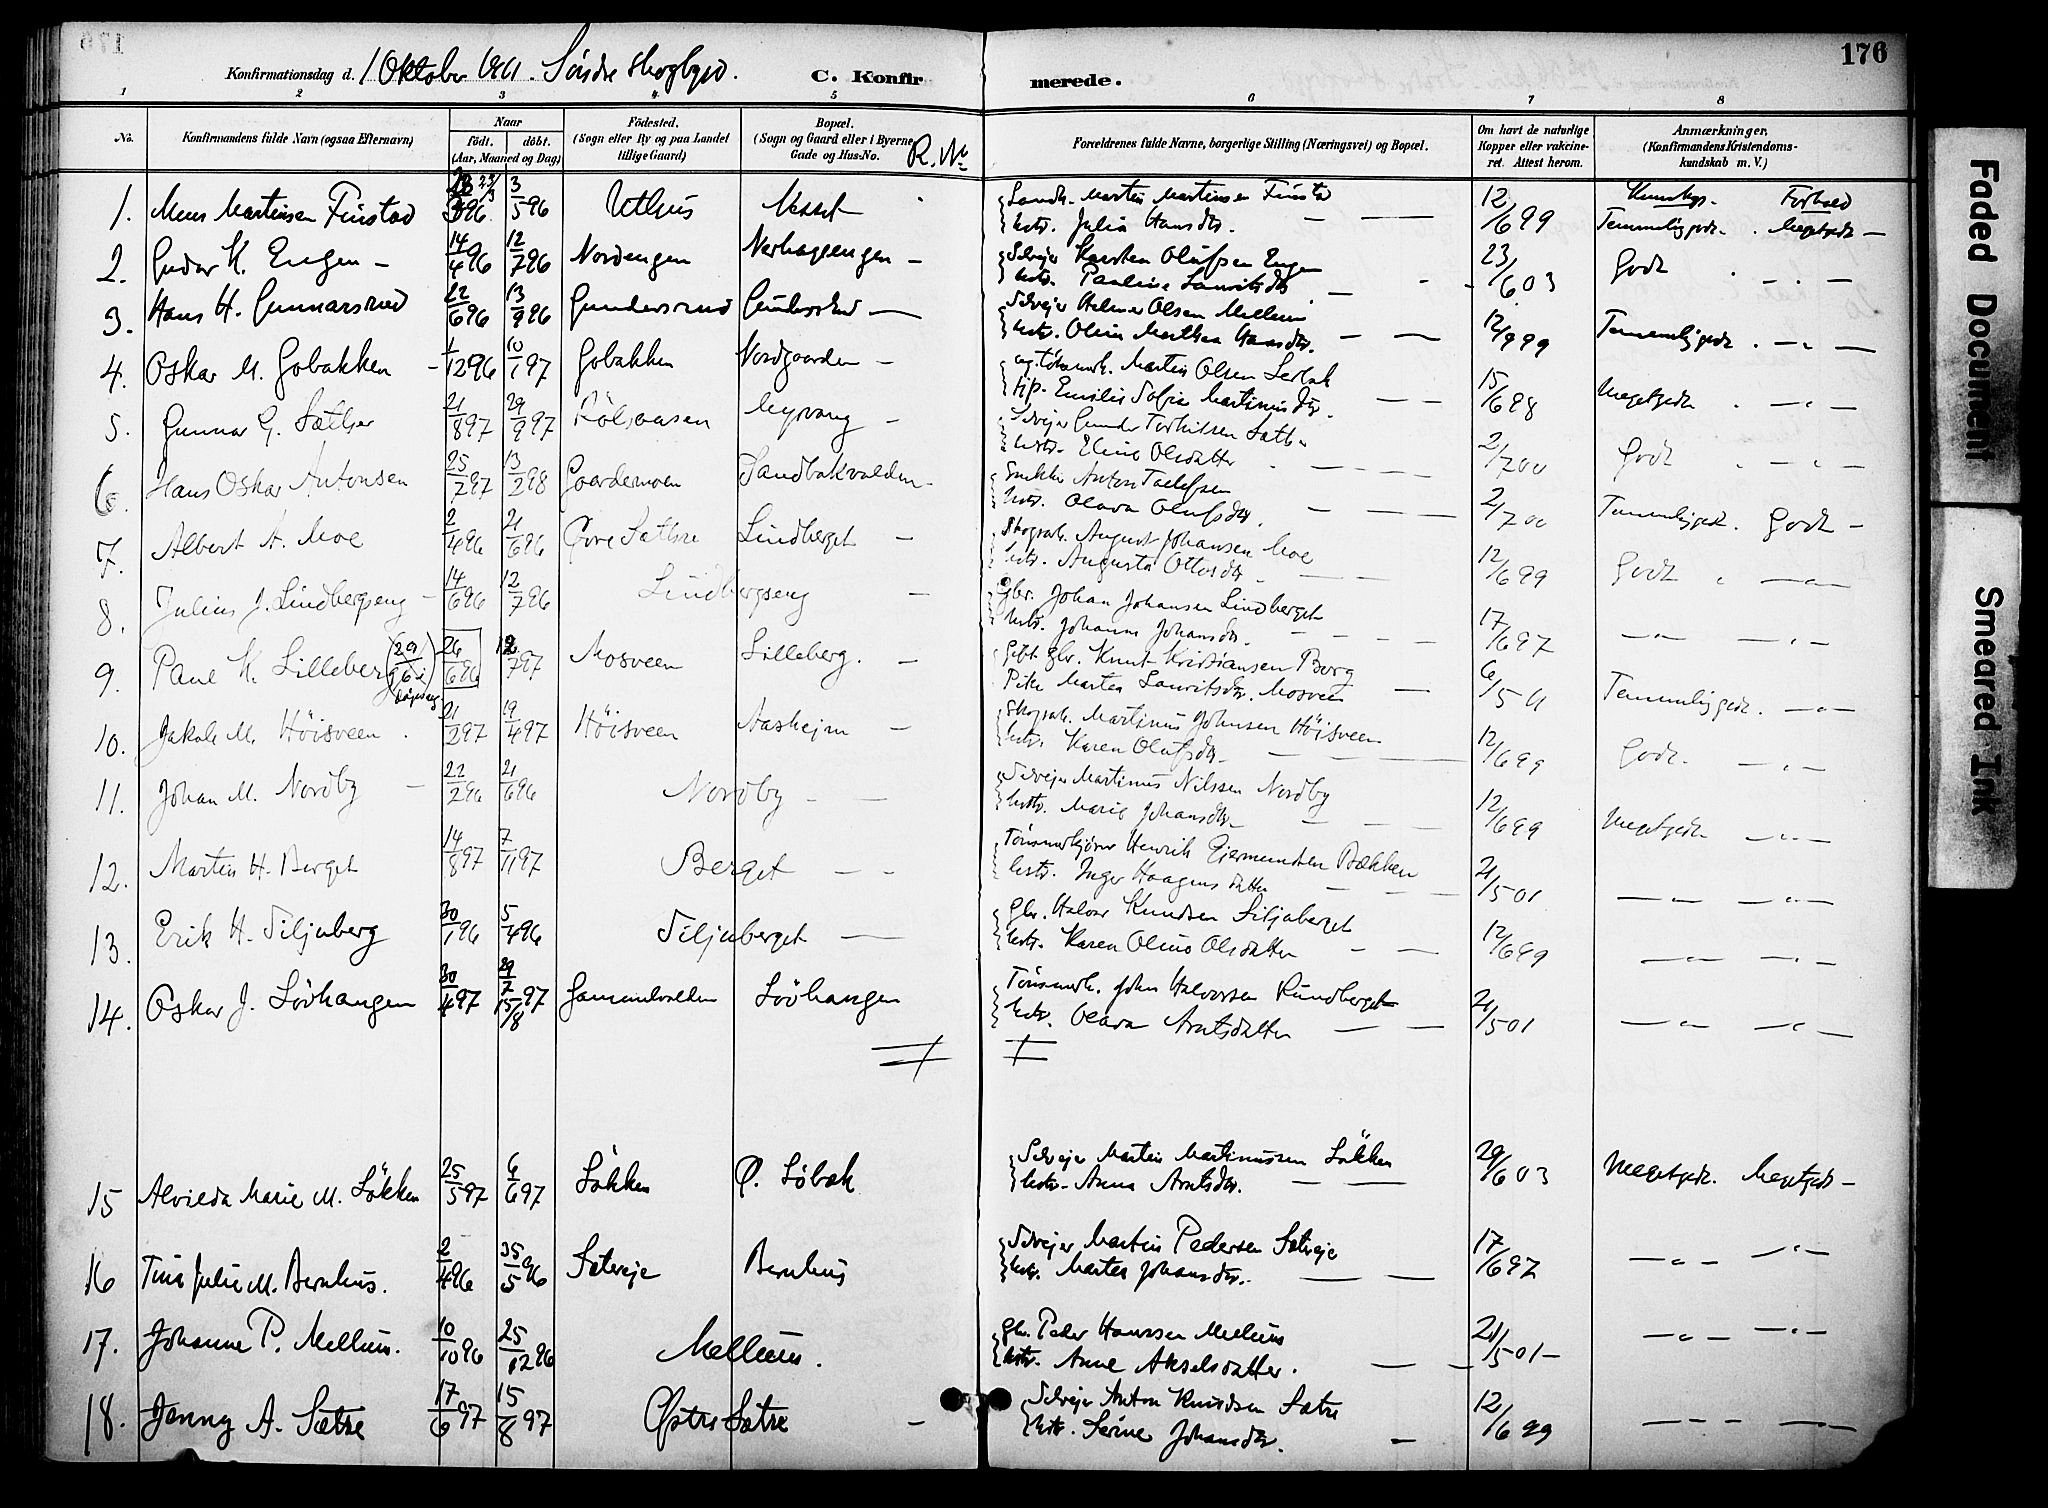 176
Konfirmationsdag d. 1 Oktober 1911. Söndre Skogbygd. C. Konfirmerede.
1 2 3 4 5 6 7 8
No. Konfirmandens fulde Navn (ogsaa Efternavn) Naar født. døbt. (Aar, Maaned og Dag) Fødested. (Sogn eller By og paa Landet tillige Gaard) Bopæl. (Sogn og Gaard eller i Byerne Gade og Hus-No. Forældrenes fulde Navne, borgerlige Stilling (Næringsvei) og Bopæl. Om havt de naturlige Kopper eller vaccineret. Attest herom. Anmærkninger. (Konfirmandens Kristendomskundskab m. V.)
R. No
Kundsk. Forhold
1. Martinsen Finstad 3/5 96 Uthus Nesset Martin Martinsen Finstad
Hstr. Julia Hansdtr. 12/6 99 Temmeliggodt. Megetgodt
2. Gudar K. Engen 14/4 96 12/7 96 Nordengen Selvejer Karsten Olufsen Engen
Hstr. Pauline Lauritsdtr 23/6 03 Godt
3. Hans H. Gunnarsrud 22/6 96 13/9 96 Gundersrud Selvejer Helmer Olsen Mellum
Hstr. Olivia Marthea Hansdtr. 12/9 99 Temmeliggodt
4. Oskar M. Gobakken 1/12 96 10/1 97 Gobakken Nordgaarden Martin Olsen
Emilie Sofie Martinusdtr. 15/6 98 Megetgodt
5. Gunnar G. Sæther 21/8 97 29/9 97 Kölsaasen Myrvang Selvejer Gunder Terkilsen Sæther
Hstr. Eline Olsdatter 2/7 00 Godt
6. Hans Oskar Antonsen 25/7 97 13/2 98 Gardermoen Sandbakvolden Snekker Anton
Hstr. Olava Olufsdtr. 2/7 00 Temmeliggodt. Godt
7. Albert A. Moe 2/4 96 21/6 96 Övre Sætre Lindberget Skogsarb. August Johansen Moe
Hstr. Augusta Ottosdtr. 12/6 99 Godt
8. Julius J. Lindbergseng 14/6 96 12/7 96 Lindbergseng Gbr. Johan Johansen Lindberget
Hstr. Johanne Johansdtr. 17/6 97
9. Paul K. Lilleberg (29/6 i 26/6 96 12/7 97 Mosveen Lilleberg. Gbr. Knut Kristiansen Berg
Pike Martea Lauritsdtr. Mosveen 6/5 11 Temmeliggodt.
10. Jakob M. Höisveen 21/2 97 19/4 97 Höisveen Aasheim Skogsarb. Martinus Johnsen Höisveen
Hstr. Karen Olufsdtr. 12/6 99 Godt.
11. Johan M. Nordby 22/2 96 21/6 96 Nordby Selvejer Martinus Nilssen Nordby
Hstr. Marie Johansdtr. 12/6 99 Megetgodt
12. Martin H. Berget 14/8 97 7/11 97 Berget Tömmerkjörer Henrik Giermundsen Bækken
Hstr. Inger Haagensdatter 21/5 01
13. Erik H. Siljuberg 30/1 96 5/4 96 Siljuberget Gbr. Halvor Knudsen Siljuberget
Hstr. Karen Oline Olsdatter 12/6 99
14. Oskar J. Lövhaugen 30/4 97 29/7 97 15/8 Gammelvolden Lövhaugen Tömmerh. John Halvorsen Rundberget
Hstr. Olava Arntsdatter 21/5 01
15 Alvilda Marie M. Lökken 25/5 97 6/6 97 Lökken Ö. Löbak Selvejer Martin Martinussen Lökken
Hstr. Anna Arntsdtr. 29/6 03 Megetgodt. Megetgodt
16 Tina Julie M. Bernhus. 2/4 96 35/5 96 Sætveje Bernhus Selvejer Martin Pedersen Sætveje
Hstr. Martea Johansdtr. 17/6 97
17. Johanne P. Mellum. 10/10 96 25/12 96 Mellum. Gbr. Peder Hanssen Mellum
Hstr. Anne Akselsdatter. 21/5 01
18. Jenny A. Sætre 17/6 97 15/8 97 Östre Sætre Selvejer Anton Knudsen Sætre
Hstr. Serine Johansdtr. 12/6 99
Faded Document
Smeared Ink